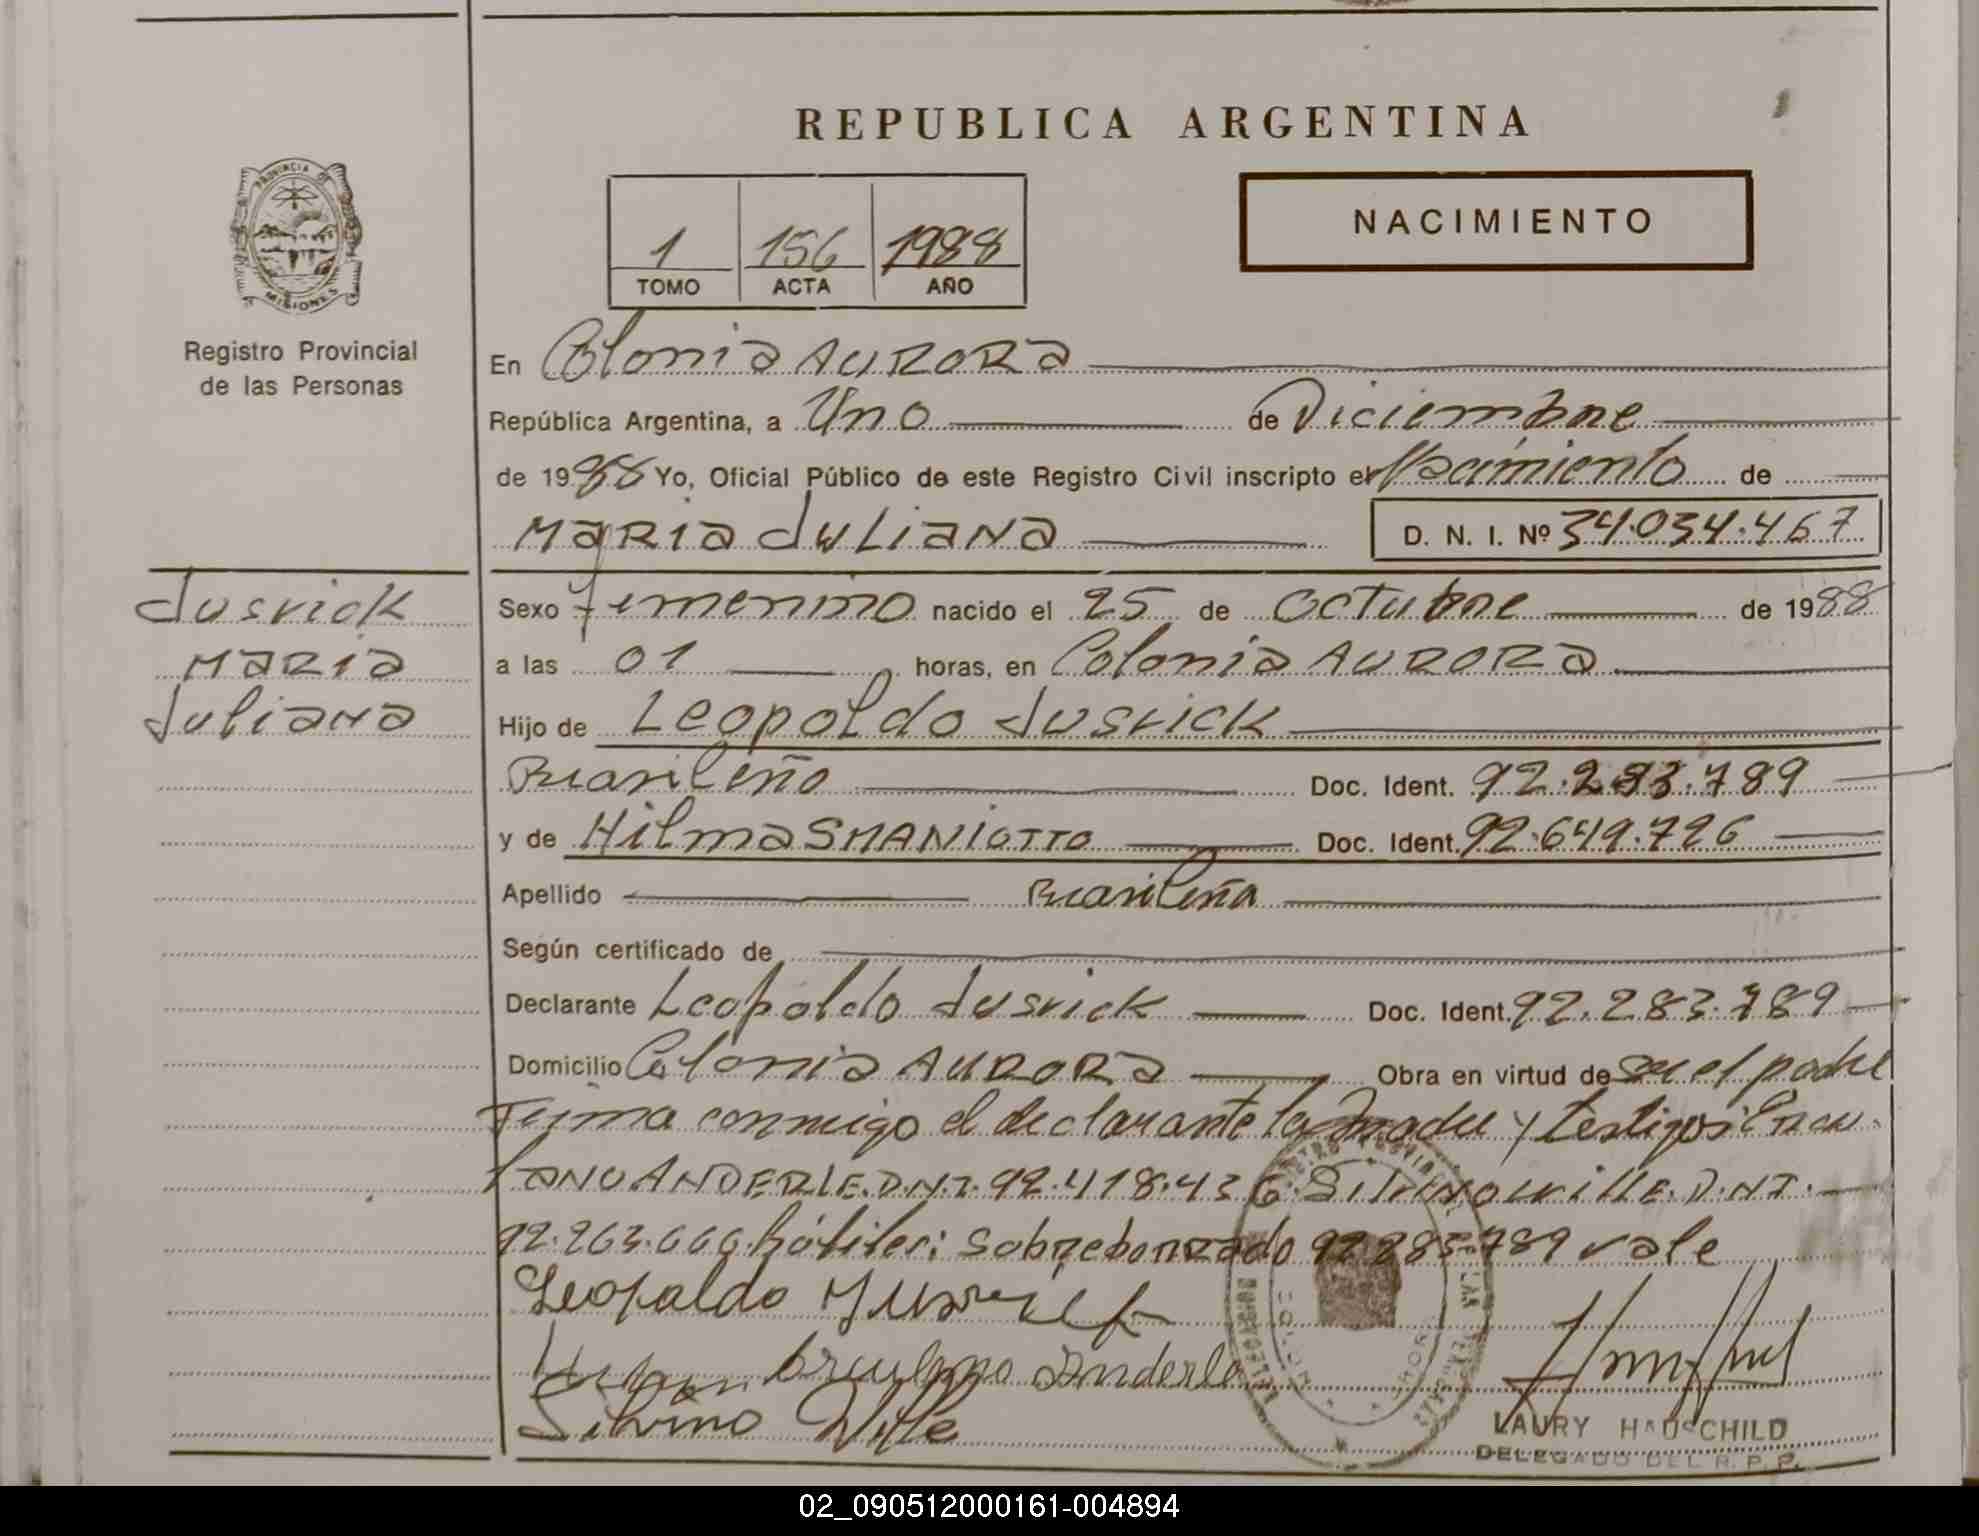 REPUBLICA ARGENTINA
PROVINCIA DE
MISIONES
Registro Provincial
de las Personas
1 156 1988
TOMO ACTA AÑO
NACIMIENTO
En Colonia AURORA
República Argentina, a Uno de Diciembre
de 1988 Yo, Oficial Público de este Registro Civil inscripto el Nacimiento de
MARIA JULIANA D. N. I. Nº 34.034.467
Jusvick
MARIA
Juliana
Sexo Femenino nacido el 25 de Octubre de 1988
a las 01 horas, en Colonia AURORA
Hijo de Leopoldo Jusvick
Brasileño Doc. Ident. 92.283.789
y de Hilma SMANIOTTO Doc. Ident. 92.649.726
Apellido Brasileña
Según certificado de
Declarante Leopoldo Jusvick Doc. Ident. 92.283.789
Domicilio Colonia AURORA Obra en virtud de ser el padre
Firma conmigo el declarante la madre y testigos: Ercu-
lANO ANDERLE.D.N.I.92.418.436. Silvino Wille.D.N.I.
92.263.666 hábiles: Sobreborrado 92283789 vale
Leopoldo Jusvick
Erculano Anderle
Silvino Wille
LAURY HAUSCHILD
DELEGADO DEL R. P. P.
02_090512000161-004894